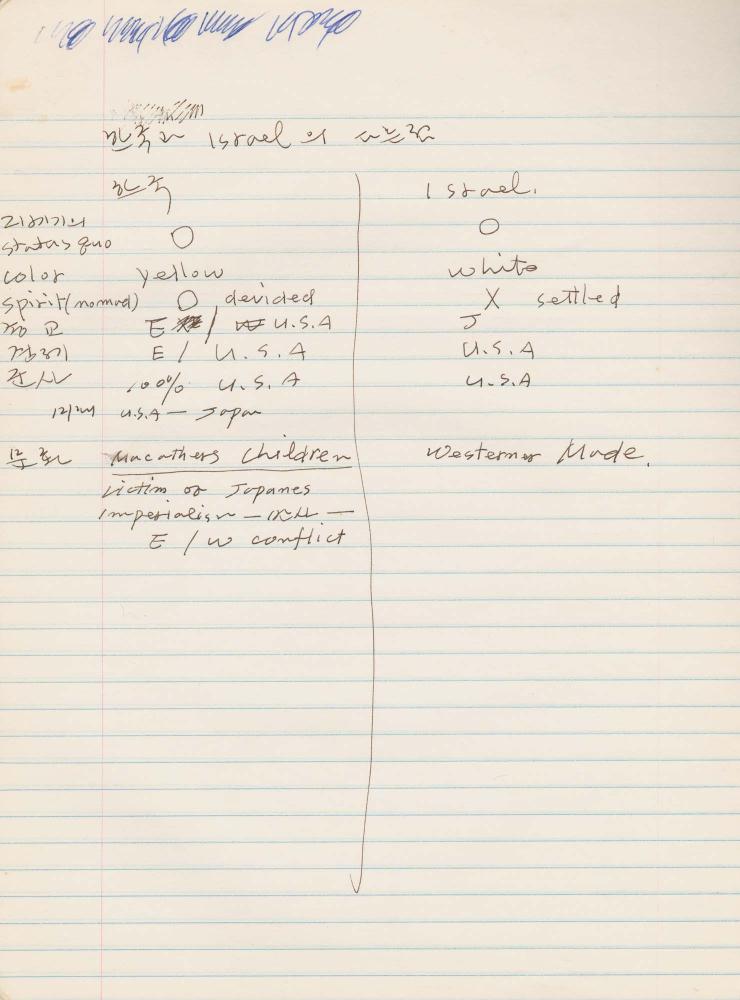 한국과 Israel 의 다른점
한국 Israel.
status quo O O
color yellow white
spirit(nomad) O devided X settled
종교 E / U.S.A J
경제 E / U.S.A U.S.A
군사 100% U.S.A U.S.A
U.S.A — Japan
문화 Macathers Children Westerner Made.
Victim of Japanes
Imperialism — 역사 —
E / W conflict